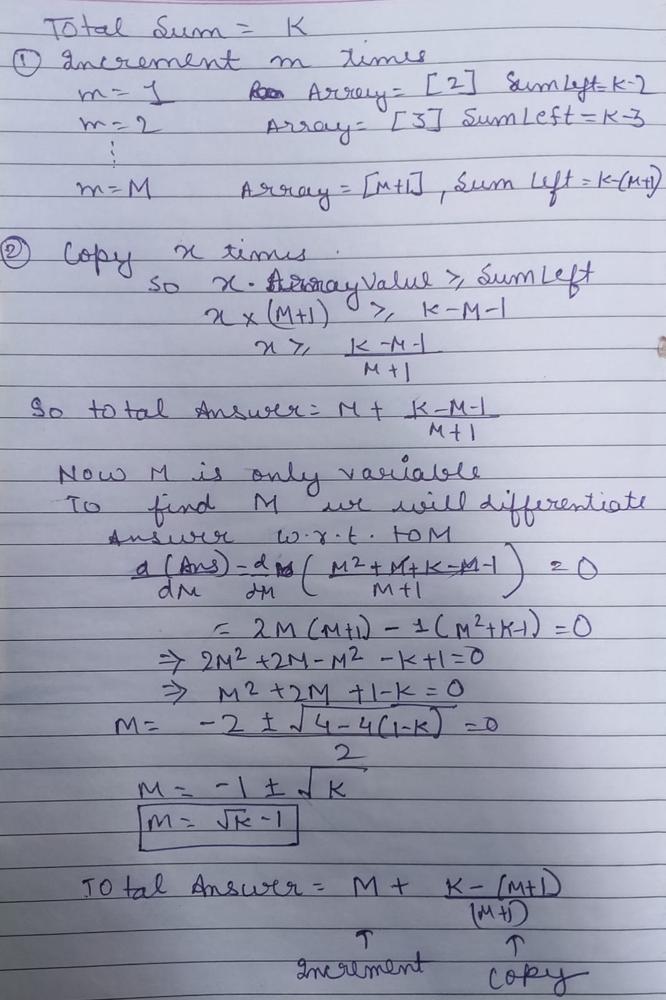 Total Sum = K
① Increment m times
m = 1 Array = [2] Sum Left = K-2
m = 2 Array = [3] Sum Left = K-3
⋮
m = M Array = [M+1], Sum Left = K-(M+1)
② Copy x times.
So x · ArrayValue ⩾ Sum Left
x × (M+1) ⩾ K-M-1
x ⩾ (K-M-1)/(M+1)
So total Answer = M + (K-M-1)/(M+1)
Now M is only variable
To find M we will differentiate
Answer w.r.t. to M
d(Ans)/dM = d/dM ((M²+M+K-M-1)/(M+1)) = 0
= 2M(M+1) - 1(M²+K-1) = 0
⇒ 2M²+2M-M²-K+1=0
⇒ M²+2M+1-K=0
M = (-2 ± √(4-4(1-K)))/2 = 0
M = -1 ± √K
M = √K-1
Total Answer = M + (K-(M+1))/(M+1)
↑ ↑
Increment Copy